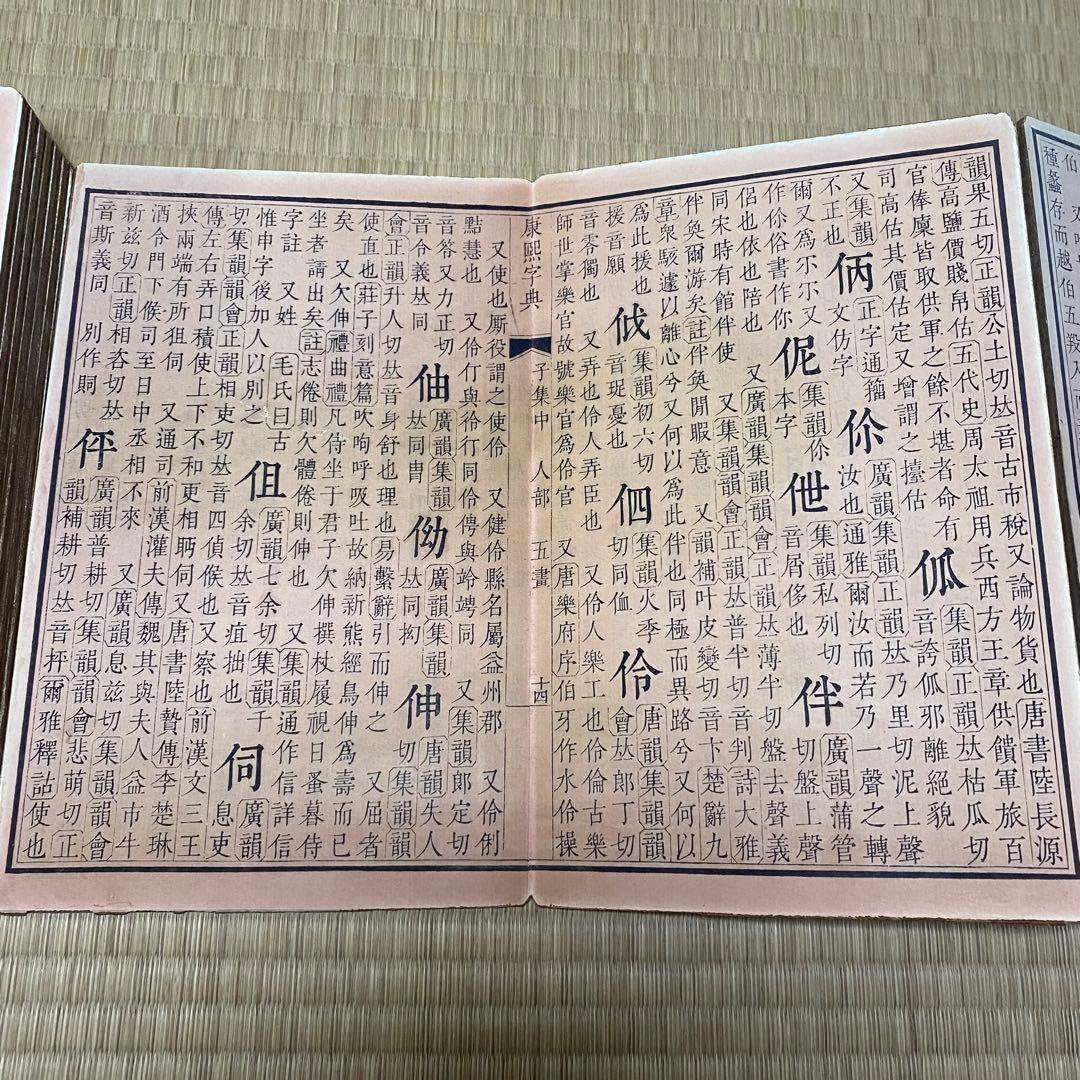 韻果五切正韻公土切𠀤音古市稅又論物貨也唐書陸長源
傳高鹽價賤帛估五代史周太祖用兵西方王章供饋軍旅百
官俸廩皆取供軍之餘不堪者命有 集韻正韻𠀤枯瓜切
司高估其價估定又增謂之擡估 音誇 邪離絕貌
又集韻 正字通籀 伱 廣韻集韻正韻𠀤乃里切泥上聲
不正也 文仿字 汝也通雅爾汝而若乃一聲之轉
爾又爲尒尒又 伲 集韻伱 伳 集韻私列切 伴 廣韻蒲管
作伱俗書作你 本字 音屑侈也 切盤上聲
侶也依也陪也 又廣韻集韻韻會正韻𠀤薄半切盤去聲義
同宋時有館伴使 又集韻韻會正韻𠀤普半切音判詩大雅
伴奐爾游矣註伴奐閒暇意 又韻補叶皮變切音卞楚辭九
章衆駭遽以離心兮又何以爲此伴也同極而異路兮又何以
爲此援也 集韻初六切 伵 集韻火季 伶 唐韻集韻韻
援音願 音珿憂也 切同侐 會𠀤郎丁切
音零獨也 又弄也伶人弄臣也 又伶人樂工也伶倫古樂
師世掌樂官故號樂官爲伶官 又唐樂府序伯牙作水伶操
康熙字典 子集中 人部 五畫 十四
又使也厮役謂之使伶 又健伶縣名屬益州郡 又伶俐
點慧也 又伶仃與伶行同伶俜與竛竮同 又集韻郎定切
音答又力正切 伷 廣韻集韻 㑃 廣韻集韻 伸 唐韻失人
音令義𠀤同 𠀤同冑 𠀤同 切集韻韻
會正韻升人切𠀤音身舒也理也易繫辭引而伸之 又屈者
使直也莊子刻意篇吹呴呼吸吐故納新熊經鳥伸爲壽而已
矣 又欠伸禮曲禮凡侍坐于君子欠伸撰杖履視日蚤暮侍
坐者請出矣註志倦則欠體倦則伸也 又集韻通作信詳信
字註 又姓 毛氏曰古 伹 廣韻七余切集韻千 伺 廣韻
惟申字後加人以別之 余切𠀤音疽拙也 息吏
切集韻韻會正韻相吏切𠀤音四偵候也又察也前漢文三王
傳左右弄口積使上下不和更相眄伺又唐書陸贄傳李楚琳
挾兩端有所狙伺 又通司前漢灌夫傳魏其與夫人益市牛
酒令門下候司至日中丞相不來 又廣韻息茲切集韻韻會
新茲切正韻相咨切𠀤 伻 廣韻普耕切集韻韻會悲萌切正
音斯義同 別作覗 韻補耕切𠀤音抨爾雅釋詁使也